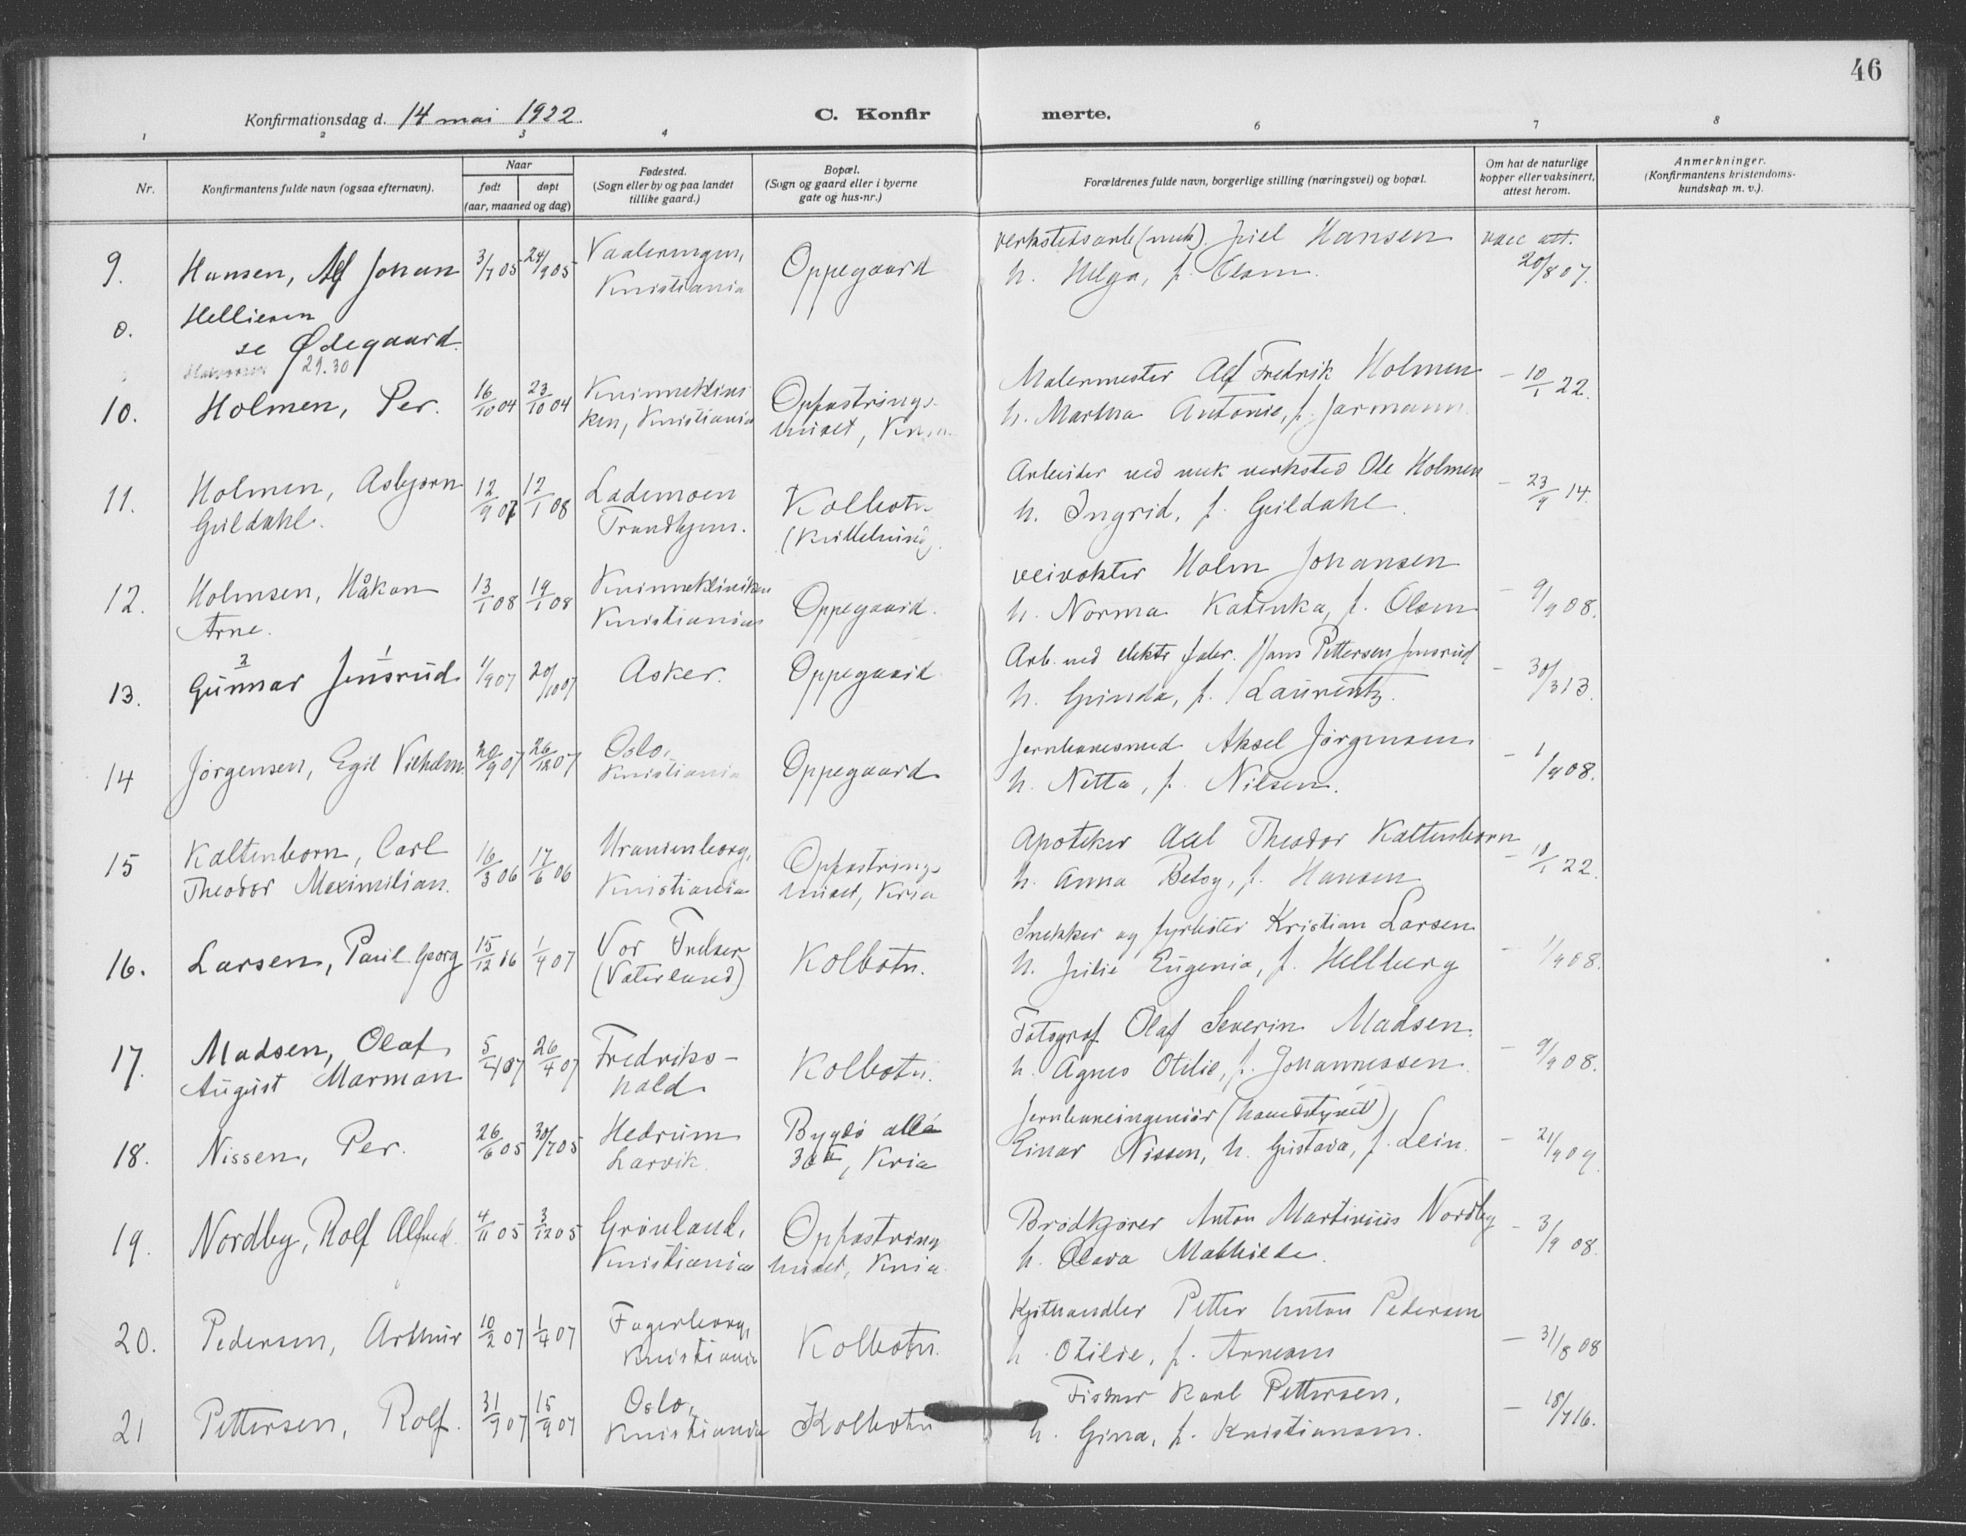 46
Konfirmationsdag d. 14 mai 1922.
C. Konfirmerte.
1 2 3 4 6 7 8
Nr.
Konfirmantens fulde navn (ogsaa efternavn).
Naar
født
døpt
(aar, maaned og dag)
Fødested.
(Sogn eller by og paa landet
tillike gaard.)
Bopæl.
(Sogn og gaard eller i byerne
gate og hus-nr.)
Forældrenes fulde navn, borgerlige stilling (næringsvei) og bopæl.
Om hat de naturlige
kopper eller vaksinert,
attest herom.
Anmerkninger.
(Konfirmantens kristendoms-
kundskap m. v.).
9. Hansen, Alf Johan 3/7 05 24/9 05
Vaaleringen,
Kristiania
Oppegaard
Hansen
h. Helga, f. Olsen.
vacc att.
20/8 07.
0. Hellesen
se Ødegaard
29.30
10. Holmen, Per. 16/10 04 23/10 04
Kvinneklinik
ken, Kristiania
Opfostrings-
huset,
Malermester Alf Fredrik Holmen
h. Martha Antonie, f. Jormann
– 10/1 22.
11. Holmen, Asbjørn
Guldahl.
12/9 07 12/1 08
Lademoen
Trondhjem.
Kolbotn
Arbeider ved mek verksted Ole Holmen
h. Ingrid, f. Guldahl.
– 23/9 14.
12. Holmsen, Håkon
Arne.
13/1 08 19/1 08
Kvinneklinikken
Kristiania
Oppegaard.
veivokter Holm Johansen
h. Norma Katinka, f. Olsen
– 9/9 08.
13. Gunnar Jensrud 1/9 07 20/10 07
2 1
Asker.
Oppegaard
Arb. ved elektr fabr. Hans Pettersen Jensrud
h. Gunda, f. Laurentz.
– 30/3 13.
14 Jørgensen, Egil Vilhelm. 20/9 07 26/12 07
Oslo,
Kristiania
Oppegaard
Jernbanesmed Aksel Jørgensen
h. Netta, f. Nilsen.
– 1/9 08.
15 Kaltenborn, Carl
Theodor Maximilian.
16/3 06 17/6 06
Uranienborg,
Kristiania
Opfostrings
huset, Kria
Apoteker Axel Theodor Kaltenborn
h. Anna Betsy, f. Hansen
– 10/1 22.
16. Larsen, Paul Georg 15/12 06 1/4 07
Vor Frelser
(Vaterland)
Kolbotn.
Snekker og fyrbøter Kristian Larsen
h. Julie Eugenia, f. Hellberg
– 1/9 08.
17. Madsen, Olaf
August Marman
5/4 07 26/4 07
Fredriks-
hald
Kolbotn.
Fotograf Olaf Severin Madsen.
h. Agnes Otilie, f. Johannessen
– 9/9 08.
18. Nissen, Per. 26/6 05 30/7 05
Hedrum
Larvik.
Bygdø allé
30 II, Kria
Jernbaneingeniør (hovedstyret)
Einar Nissen, h. Gustava, f. Lein.
– 21/9 09.
19. Nordby, Rolf Alfred. 4/11 05 3/12 05
Grønland,
Kristiania
Opfostring
huset, Kria.
Brødkjører Anton Martinius Nordby
h. Olava Mathilde.
– 3/9 08.
20. Pedersen, Arthur 10/2 07 1/4 07
Fagerborg,
Kristiania
Kolbotn.
Kjøthandler Petter Anton Pedersen
h. Otilie, f. Arnesen
– 31/8 08
21 Pettersen, Rolf. 31/7 07 15/9 07
Oslo,
Kristiania
Kolbotn
Fisker Karl Pettersen,
h. Gina, f. Kristiansen.
– 18/7 16.